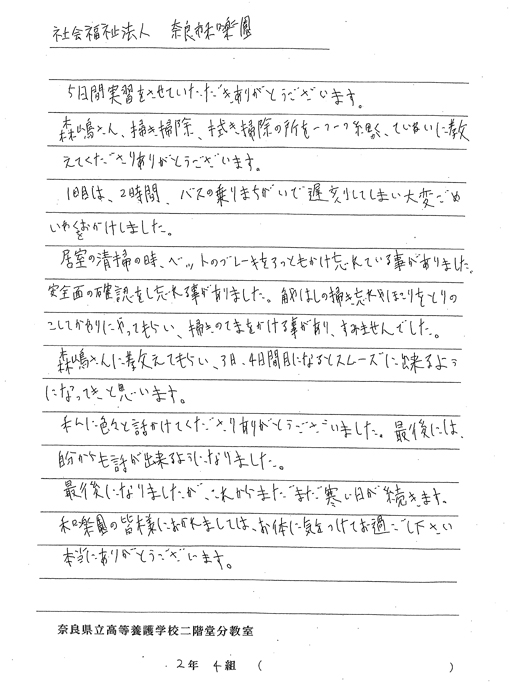 社会福祉法人 奈良市和楽園
5日間実習をさせていただきありがとうございます。
森嶋さん、掃き掃除、拭き掃除の所を一つ一つ細く、ていねいに教
えてくださりありがとうございます。
1日目は、2時間、バスの乗りまちがいで遅刻してしまい大変ごめ
いわくをおかけしました。
居室の清掃の時、ベットのブレーキを2つともかけ忘れている事がありました。
安全面の確認をし忘れる事がありました。角やはしの掃き忘れやほこりをとりの
こしてかわりにやってもらい、掃きのてまをかける事があり、すみませんでした。
森嶋さんに教えてもらい、3日、4日間目になるとスムーズに出来るよう
になってきと思います。
私に色々と話かけてくださりありがとうございました。最後には、
自分からも話が出来るようになりました。
最後になりましたが、これからまだまだ寒い日が続きます。
和楽園の皆様におかれましては、お体に気をつけてお過ご下さい
本当にありがとうございます。
奈良県立高等養護学校二階堂分教室
2年 4組 ( )